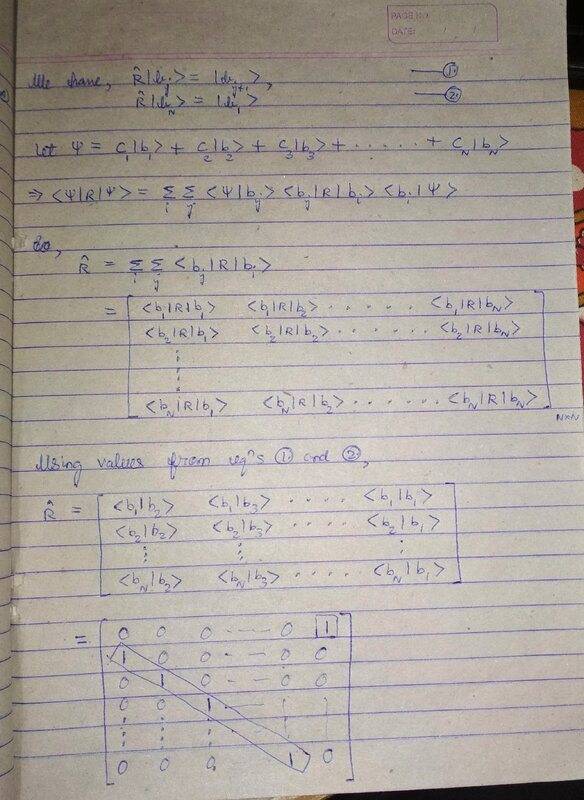 PAGE NO.
DATE: / /
We have, R̂|b_j> = |b_{j+1}>, —— ①
R̂|b_N> = |b_1> —— ②
Let Ψ = C_1|b_1> + C_2|b_2> + C_3|b_3> + ...... + C_N|b_N>
⇒ <Ψ|R|Ψ> = Σ_i Σ_j <Ψ|b_j> <b_j|R|b_i> <b_i|Ψ>
So,
R̂ = Σ_i Σ_j <b_j|R|b_i>
= [ <b_1|R|b_1> <b_1|R|b_2> ...... <b_1|R|b_N>
<b_2|R|b_1> <b_2|R|b_2> ...... <b_2|R|b_N>
⋮
<b_N|R|b_1> <b_N|R|b_2> ...... <b_N|R|b_N> ] N×N
Using values from eqⁿs ① and ②,
R̂ = [ <b_1|b_2> <b_1|b_3> .... <b_1|b_1>
<b_2|b_2> <b_2|b_3> .... <b_2|b_1>
⋮ ⋮ ⋮
<b_N|b_2> <b_N|b_3> .... <b_N|b_1> ]
= [ 0 0 0 ---- 0 1
1 0 0 ---- 0 0
0 1 0 ---- 0 0
0 0 1 ---- ⋮ ⋮
⋮ ⋮ ⋮
0 0 0 1 0 ]